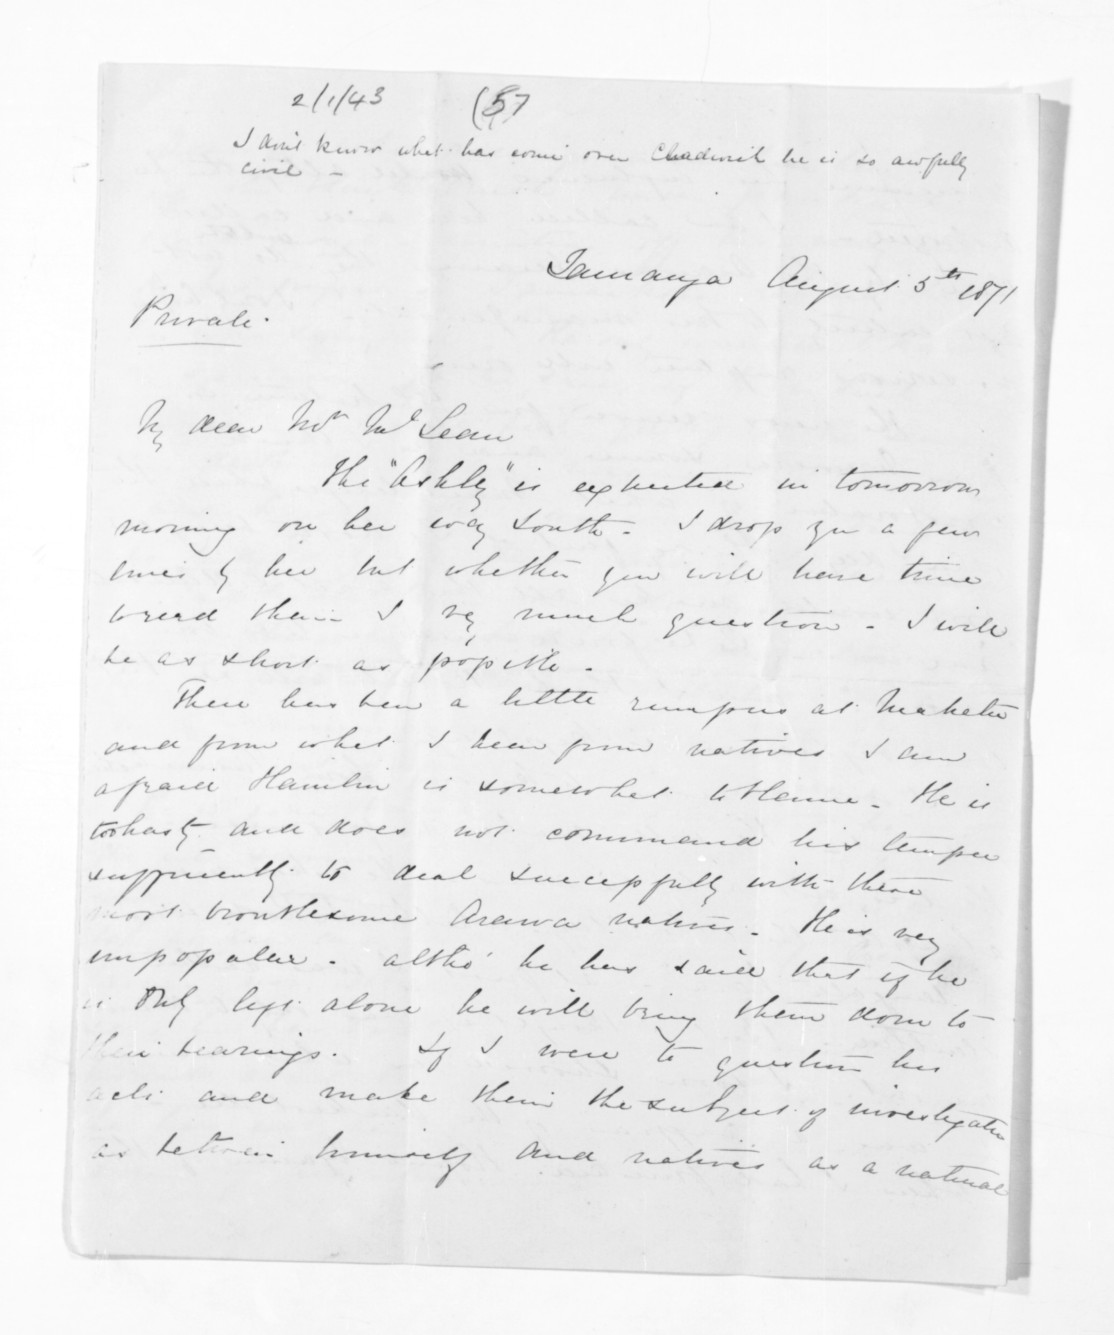 2/1/43 (57
I don't know what has come over Chadwick he is so awfully
civil –
Tauranga August 5th 1871
Private.
My dear Mr McLean
The "Ashley" is expected in tomorrow
morning on her way South – I drop you a few
lines by her but whether you will have time
to read them I very much question – I will
be as short as possible –
There has been a little rumpus at Maketu
and from what I hear from natives I am
afraid Hamlin is somewhat to blame – He is
too hasty and does not command his temper
sufficiently to deal successfully with these
most troublesome Arawa natives – He is very
unpopular – altho' he has said that if he
is only left alone he will bring them down to
their bearings. If I were to question his
acts and make them the subject of investigation
as between himself and natives as a natural